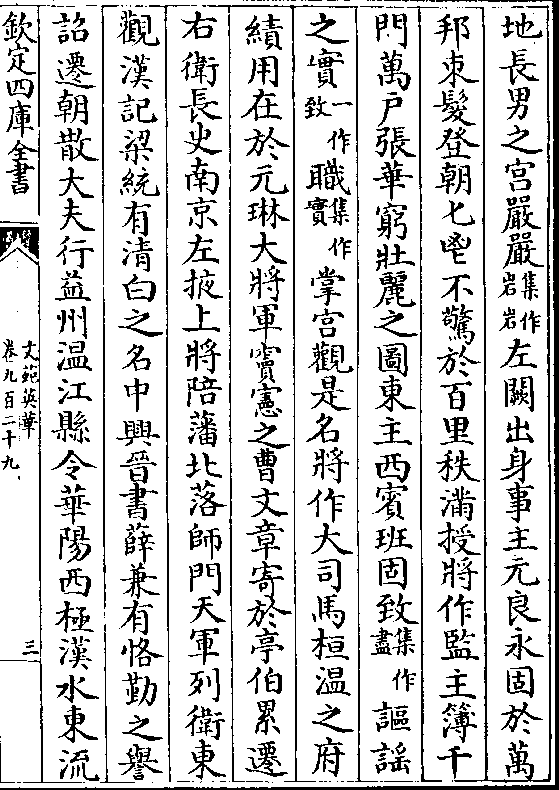 地長男之宫嚴嚴集作岩岩左闕出身事主元良永固於萬
邦束髮登朝匕鬯不驚於百里秩滿授將作監主簿千
門萬户張華窮壯麗之圖東主西賓班固致集作盡謳謡
之實一作致職集作實掌宫觀是名將作大司馬桓温之府
績用在於元琳大將軍竇憲之曹文章寄於亭伯累遷
右衛長史南京左掖上將陪藩北落師門天軍列衛東
觀漢記梁統有清白之名中興晉書薛兼有恪勤之譽
詔遷朝散大夫行益州温江縣令華陽西極漢水東流
欽定四庫全書
文苑英華
卷九百二十九
三